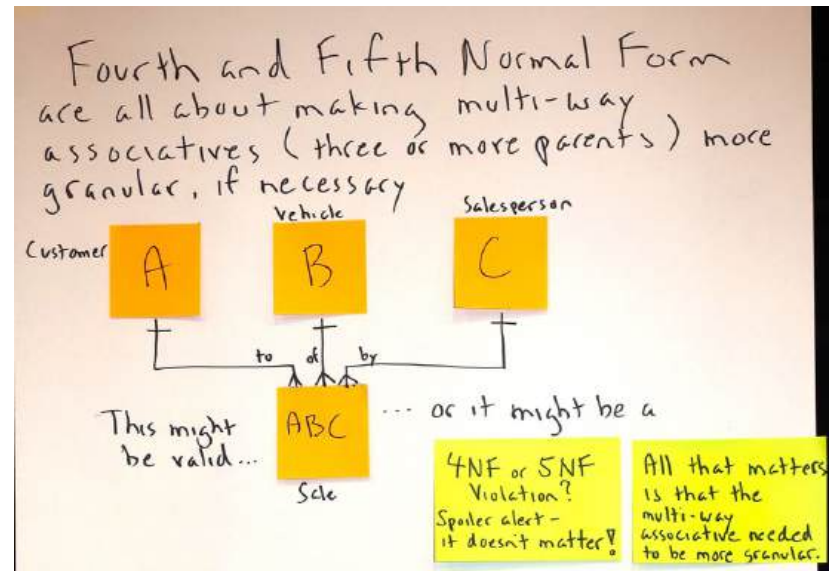 Fourth and Fifth Normal Form
are all about making multi-way
associatives (three or more parents) more
granular, if necessary
Customer
Vehicle
Salesperson
A
B
C
to of by
This might
be valid...
ABC
Sale
... or it might be a
4NF or 5NF
Violation?
Spoiler alert -
it doesn't matter!
All that matters
is that the
multi-way
associative needed
to be more granular.